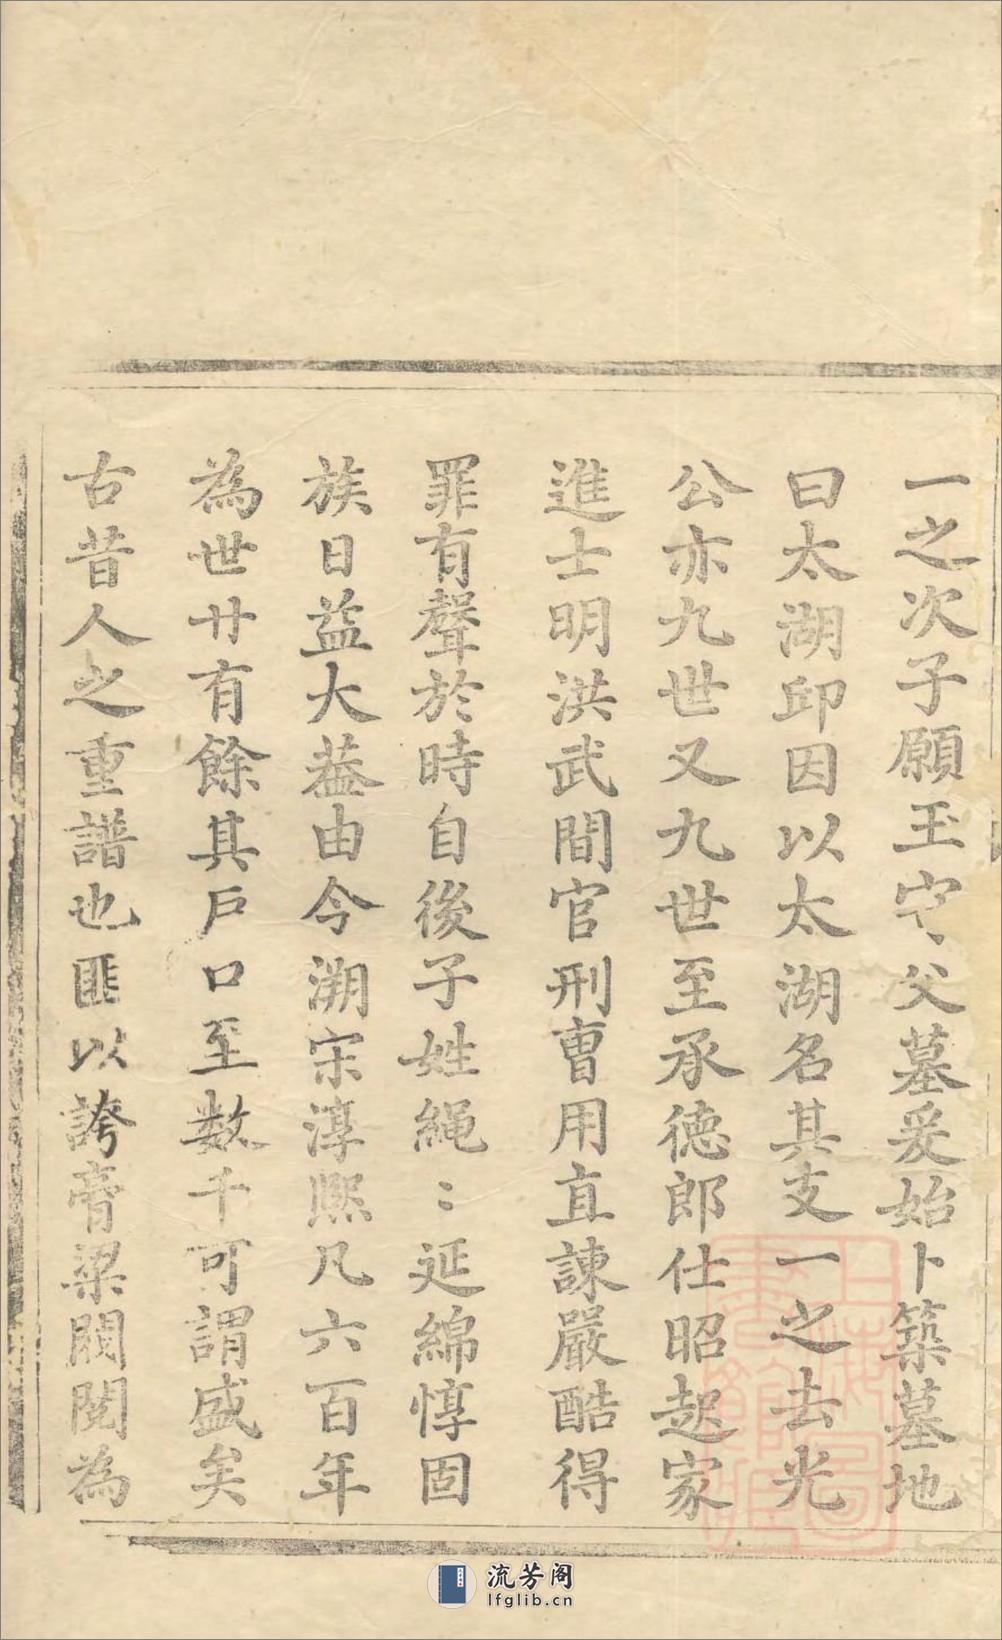 一之次子願玉守父墓爰始卜築墓地
曰太湖邱因以太湖名其支一之去光
公亦九世又九世至承德郎仕昭起家
進士明洪武間官刑曹用直諫嚴酷得
罪有聲於時自後子姓繩〻延綿惇固
族日益大葢由今溯宋淳熈凡六百年
為世廿有餘其戶口至数千可謂盛矣
古昔人之重譜也匪以誇膏梁閥閱為
上海圖書館藏
流芳阁
lfglib.cn